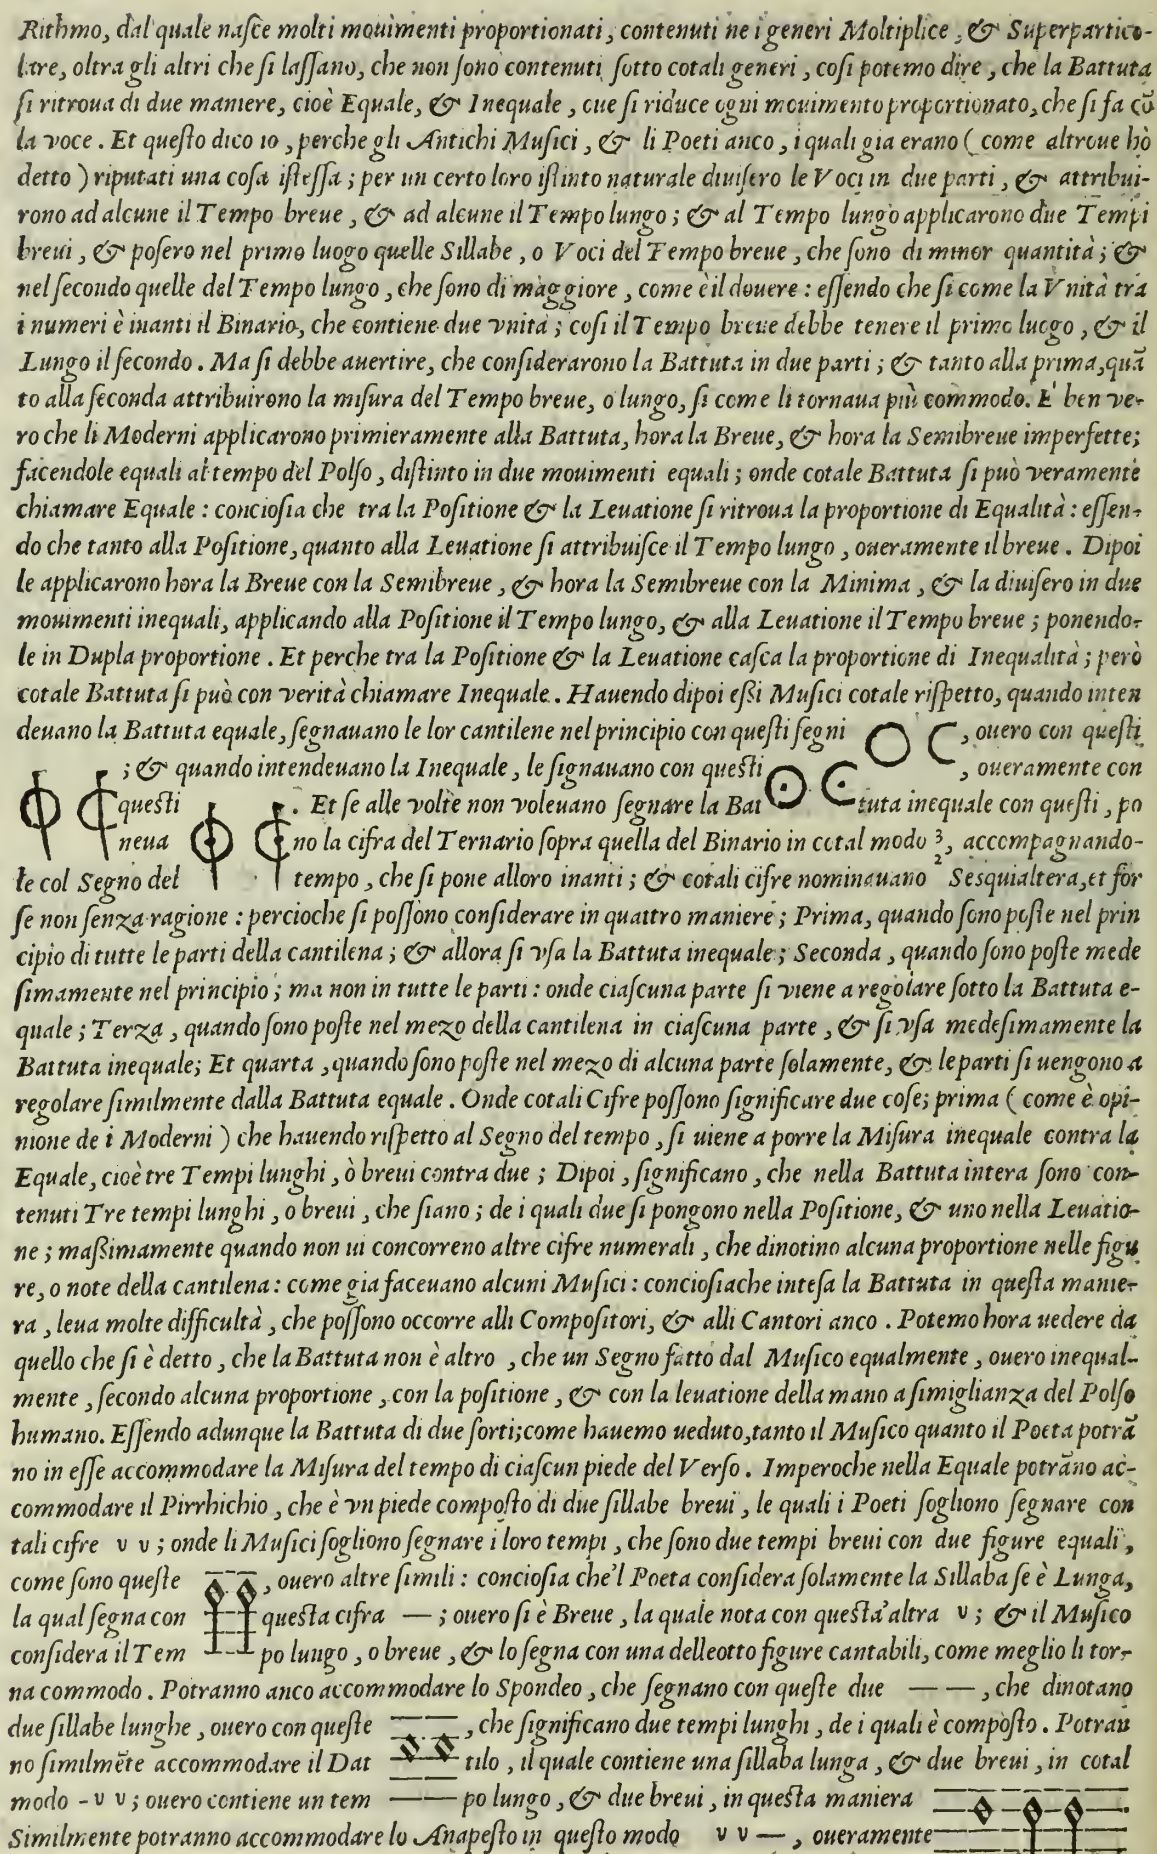 Rithmo, dal quale naſce molti mouimenti proportionati, contenuti ne i generi Moltiplice, & Superpartico-
lare, oltra gli altri che ſi laſſano, che non ſono contenuti ſotto cotali generi, coſi potemo dire, che la Battuta
ſi ritroua di due maniere, cioè Equale, & Inequale, oue ſi riduce ogni mouimento proportionato, che ſi fa cõ
la voce. Et queſto dico io, perche gli Antichi Muſici, & li Poeti anco, i quali gia erano (come altroue hò
detto) riputati una coſa iſteſſa; per un certo loro iſtinto naturale diuiſero le Voci in due parti, & attribui-
rono ad alcune il Tempo breue, & ad alcune il Tempo lungo; & al Tempo lungo applicarono due Tempi
breui, & poſero nel primo luogo quelle Sillabe, o Voci del Tempo breue, che ſono di minor quantità; &
nel ſecondo quelle del Tempo lungo, che ſono di maggiore, come è il douere: eſſendo che ſi come la Vnità tra
i numeri è inanti il Binario, che contiene due vnità; coſi il Tempo breue debbe tenere il primo luogo, & il
Lungo il ſecondo. Ma ſi debbe auertire, che conſiderarono la Battuta in due parti; & tanto alla prima, quã
to alla ſeconda attribuirono la miſura del Tempo breue, o lungo, ſi come li tornaua più commodo. E' ben ve-
ro che li Moderni applicarono primieramente alla Battuta, hora la Breue, & hora la Semibreue imperfette;
facendole equali al tempo del Polſo, diſtinto in due mouimenti equali; onde cotale Battuta ſi può veramente
chiamare Equale: concioſia che tra la Poſitione & la Leuatione ſi ritroua la proportione di Equalità: eſſen-
do che tanto alla Poſitione, quanto alla Leuatione ſi attribuiſce il Tempo lungo, oueramente il breue. Dipoi
le applicarono hora la Breue con la Semibreue, & hora la Semibreue con la Minima, & la diuiſero in due
mouimenti inequali, applicando alla Poſitione il Tempo lungo, & alla Leuatione il Tempo breue; ponendo-
le in Dupla proportione. Et perche tra la Poſitione & la Leuatione caſca la proportione di Inequalità; però
cotale Battuta ſi può con verità chiamare Inequale. Hauendo dipoi eſsi Muſici cotale riſpetto, quando inten
deuano la Battuta equale, ſegnauano le lor cantilene nel principio con queſti ſegni , ouero con queſti
; & quando intendeuano la Inequale, le ſignauano con queſti , oueramente con
queſti . Et ſe alle volte non voleuano ſegnare la Bat tuta inequale con queſti, po
neua no la cifra del Ternario ſopra quella del Binario in cotal modo 3/2, accompagnando-
le col Segno del tempo, che ſi pone alloro inanti; & cotali cifre nominauano Sesquialtera, et for
ſe non ſenza ragione: percioche ſi poſſono conſiderare in quattro maniere; Prima, quando ſono poſte nel prin
cipio di tutte le parti della cantilena; & allora ſi vſa la Battuta inequale; Seconda, quando ſono poſte mede
ſimamente nel principio; ma non in tutte le parti: onde ciaſcuna parte ſi viene a regolare ſotto la Battuta e-
quale; Terza, quando ſono poſte nel mezo della cantilena in ciaſcuna parte, & ſi vſa medeſimamente la
Battuta inequale; Et quarta, quando ſono poſte nel mezo di alcuna parte ſolamente, & le parti ſi uengono a
regolare ſimilmente dalla Battuta equale. Onde cotali Cifre poſſono ſignificare due coſe; prima (come è opi-
nione de i Moderni) che hauendo riſpetto al Segno del tempo, ſi uiene a porre la Miſura inequale contra la
Equale, cioè tre Tempi lunghi, ò breui contra due; Dipoi, ſignificano, che nella Battuta intera ſono con-
tenuti Tre tempi lunghi, o breui, che ſiano; de i quali due ſi pongono nella Poſitione, & uno nella Leuatio-
ne; maßimamente quando non ui concorreno altre cifre numerali, che dinotino alcuna proportione nelle figu
re, o note della cantilena: come gia faceuano alcuni Muſici: concioſiache inteſa la Battuta in queſta manie-
ra, leua molte difficultà, che poſſono occorre alli Compoſitori, & alli Cantori anco. Potemo hora uedere da
quello che ſi è detto, che la Battuta non è altro, che un Segno fatto dal Muſico equalmente, ouero inequal-
mente, ſecondo alcuna proportione, con la poſitione, & con la leuatione della mano a ſimiglianza del Polſo
humano. Eſſendo adunque la Battuta di due ſorti; come hauemo ueduto, tanto il Muſico quanto il Poeta potrã
no in eſſe accommodare la Miſura del tempo di ciaſcun piede del Verſo. Imperoche nella Equale potrãno ac-
commodare il Pirrhichio, che è vn piede compoſto di due ſillabe breui, le quali i Poeti ſogliono ſegnare con
tali cifre v v; onde li Muſici ſogliono ſegnare i loro tempi, che ſono due tempi breui con due figure equali,
come ſono queſte , ouero altre ſimili: concioſia che'l Poeta conſidera ſolamente la Sillaba ſe è Lunga,
la qual ſegna con queſta cifra —; ouero ſi è Breue, la quale nota con queſta'altra v; & il Muſico
conſidera il Tem po lungo, o breue, & lo ſegna con una delle otto figure cantabili, come meglio li tor-
na commodo. Potranno anco accommodare lo Spondeo, che ſegnano con queſte due — —, che dinotano
due ſillabe lunghe, ouero con queſte , che ſignificano due tempi lunghi, de i quali è compoſto. Potran
no ſimilmẽte accommodare il Dat tilo, il quale contiene una ſillaba lunga, & due breui, in cotal
modo - v v; ouero contiene un tem po lungo, & due breui, in queſta maniera .
Similmente potranno accommodare lo Anapeſto in queſto modo v v —, oueramente